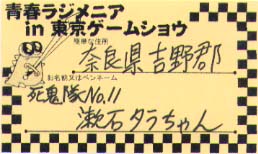 青春ラジメニア
in 東京ゲームショウ
簡単な住所
奈良県吉野郡
お名前又はペンネーム
死鬼隊No.11
漱石タラちゃん